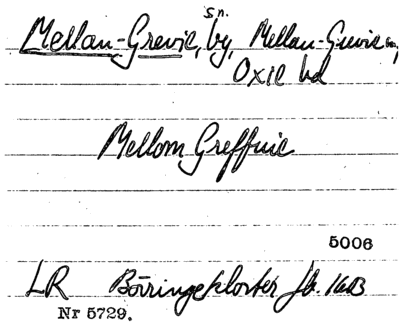 sn.
Mellan-Grevie, by, Mellan-Grevie sn.,
Oxie hd
Mellom Greffuie
5006
LR Börringekloster Jb. 16B
Nr 5729.